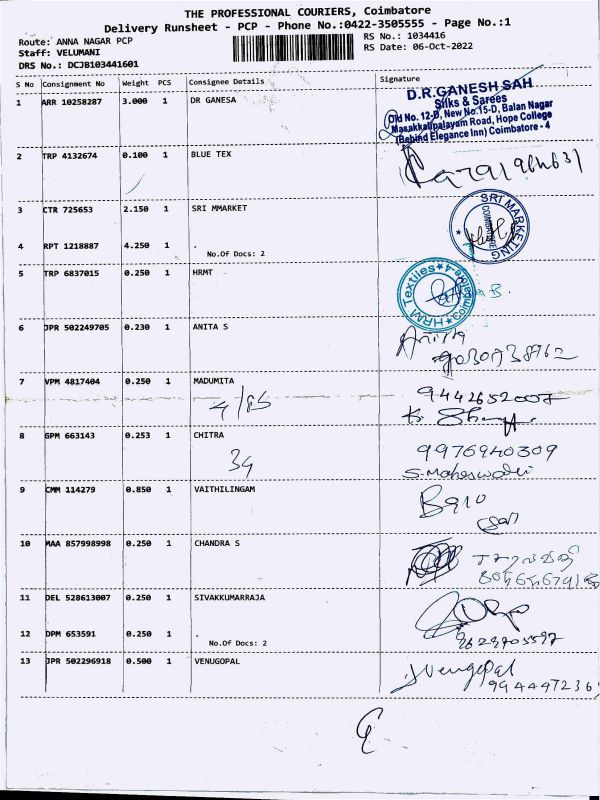 THE PROFESSIONAL COURIERS, Coimbatore
Delivery Runsheet - PCP - Phone No.:0422-3505555 - Page No.:1
Route: ANNA NAGAR PCP
RS No.: 1034416
Staff: VELUMANI
RS Date: 06-Oct-2022
DRS No.: DCJB103441601
S No Consignment No Weight PCS Consignee Details Signature
1 ARR 10258287 3.000 1 DR GANESA
D.R.GANESH SAH
Silks & Sarees
Old No. 12-D, New No.15-D, Balan Nagar
Masakkalipalayam Road, Hope College
(Behind Elegance Inn) Coimbatore - 4
2 TRP 4132674 0.100 1 BLUE TEX
3 CTR 725653 2.150 1 SRI MMARKET
SRI MARKETING
COIMBATORE
4 RPT 1218887 4.250 1 .
No.Of Docs: 2
5 TRP 6837015 0.250 1 HRMT
HRM Textiles * Coimbatore-4 *
6 JPR 502249705 0.230 1 ANITA S
Anitta
7 VPM 4817404 0.250 1 MADUMITA
4/85
9442652007
8 GPM 663143 0.253 1 CHITRA
34
9976940309
S. Maheswari
9 CMM 114279 0.850 1 VAITHILINGAM
10 MAA 857998998 0.250 1 CHANDRA S
11 DEL 528613007 0.250 1 SIVAKKUMARRAJA
12 DPM 653591 0.250 1 .
No.Of Docs: 2
9629705597
13 JPR 502296918 0.500 1 VENUGOPAL
J Venugopal